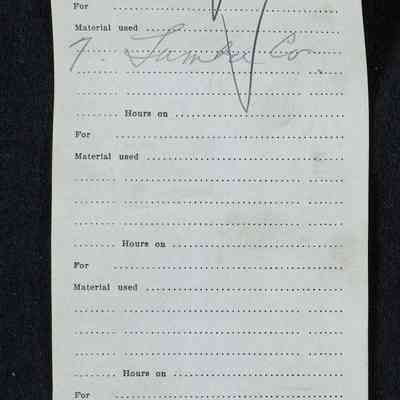 For
Material used
Co.
Hours on
For
Material used
Hours on
For
Material used
Hours on
For